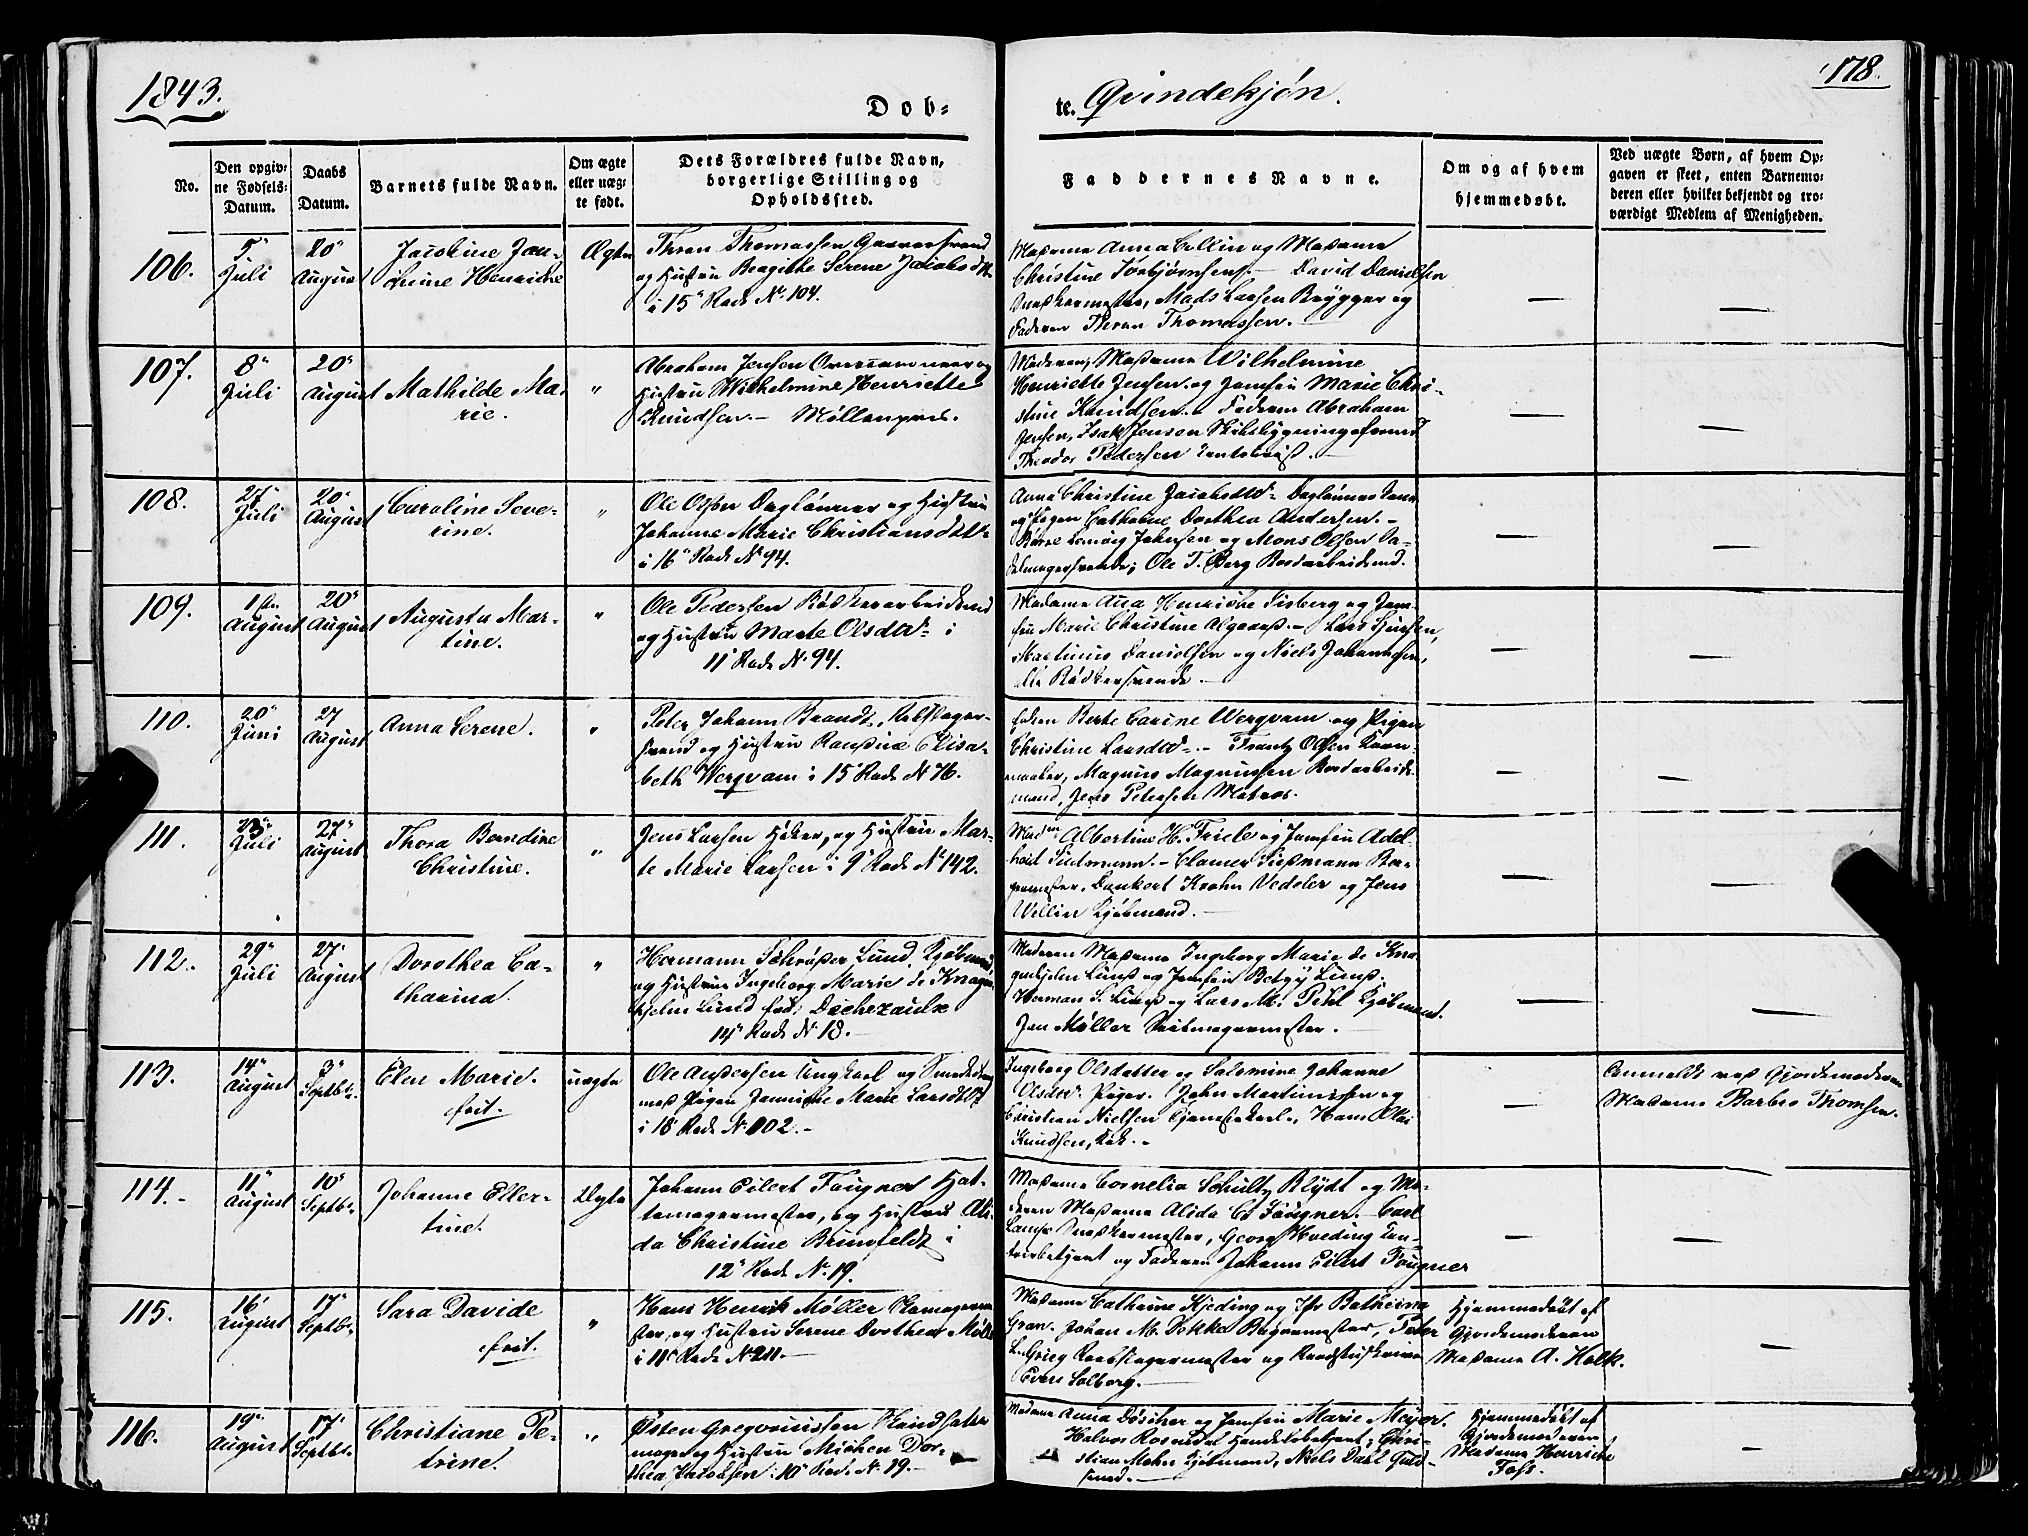 1843.
Døb-
te. Qvindekjøn.
178.
No.
Den opgiv-
ne Fødsels-
Datum.
Daabs
Datum.
Barnets fulde Navn.
Om ægte
eller uæg-
te født.
Dets Forældres fulde Navn,
borgerlige Stilling og
Opholdssted.
Faddernes Navne.
Om og af hvem
hjemmedøbt.
Ved uægte Børn, af hvem Op-
gaven er skeet, enten Barnemo-
deren eller hvilket bekjendt og tro-
værdigt Medlem af Menigheden.
106.
5"
Juli
20"
August
Jacobine Jan-
Henricke
Ægte
Thomassen
og Hustru Beagithe Serene Jacobsd.
i 15" Rode No. 104.
Madame Anna Collin og Madame
Christine Torbjørnsen. — David Danielsen
Mads Larsen Brygger og
Faderen Thomassen.
—
—
107.
8"
Juli
20"
August
Mathilde Ma-
rie.
"
Abraham Jensen
Hustru Wilhelmine Henriette
Knudsen. — Møllenpris.
Moderen, Madame Wilhelmine
Henriette Jensen og Jomfru Marie Chri-
stine Knudsen. Faderen Abraham
Jensen, Isak Jenson
Theodor Pedersen
—
—
108.
27"
Juli
20"
August
Caroline Seve-
rine.
"
Ole Olsen Daglønner og Hustru
Johanne Marie Christiansdatt.
i 16" Rode No 94.
Anna Christine Jacobsdtr.
og Pigen Cathrine Dorthea Andersen. —
Johnsen og Mons Olsen Sa-
delmagersvende, Ole T. Berg
—
—
109.
1ste
August
20"
August
Augusta Mar-
tine.
"
Ole Pedersen Bødkerarbeidsmd
og Hustru Marte Olsdtr. i
11" Rode No. 94.
Madame Ana Henricke og Jom-
fru Marie Christine — Lars
Martinus Danielsen og Niels Johannesen,
alle Bødkersvende. —
—
—
110.
20"
Juni
27
August
Anna Serene.
"
Peter Johann Brandt, Rebslager-
svend og Hustru Elisa-
beth Wergvam i 15" Rode No 76.
Berte Carine Wergvam og Pigen
Christine Larsdtr. — Frantz Olsen
Magnus Magnussen
mand, Jens Petersen Matros.
—
—
111.
23"
Juli
27"
August
Thora Berndine
Christine.
"
Jens Larsen Høker, og Hustru Mar-
te Marie Larsen i 9" Rode No 142.
Madme Albertine H. Friele og Jomfru Adel-
heid — Clamer
Dankert Krohn Vedeler og Jens
Wellin Kjøbmand. —
—
—
112.
29"
Juli
27"
August
Dorothea Ca-
tharina.
"
Hermann Schrøder Lund, Kjøbmand,
og Hustrue Ingeborg Marie de Knagen-
hjelm Lund fød, Dechezaulx
14" Rode No. 18. —
Moderen Madame Ingeborg Marie de Kna-
genhjelm Lund og Jomfru Betzy Lund.
Herman S. Lund og Lars M. Pihl Kjøbmænd.
Jan Møller
—
—
113.
14"
August
3"
Septbr.
Elen Marie.
frit.
uægte
Ole Andersen Ungkarl og
med Pigen Jannicke Marie Larsdtr
i 18" Rode No. 102. —
Ingeborg Olsdatter og Salomine Johanne
Olsdtr. Piger. John Martinussen og
Christian Nielsen Tjenestekarle, Hans
Knudsen,
—
Anmeldt ved Gjordemoderen
Madame Barbro Thomsen.
114. -
11"
August
10"
Septbr.
Johanne Eiler-
tine.
Ægte
Johann Eilert Fougner Hat-
temagermester, og Hustru Ali-
da Christine Brunfeldt i
12" Rode No. 19.
Madame Cornelia Schultz Blydt og Mo-
deren Madame Alida C. Fougner. — Carl
Georg Hveding
og Faderen Johann Eilert Fougner
—
—
115.
16'
August
17"
Septbr.
Sara Davide
frit.
"
Hans Henrik Møller
og Hustru Serene Dorthea Møller
i 11" Rode No 211. —
Madame Cathrine Kjeding og Jfr Bathima
Gran. Johan M. Dekke Bagermester, Peter
L. Grieg Rebslagermester og
Solberg. —
Hjemmedøbt af
Gjordemoderen
Madame A. Holk.
—
116.
19"
August
17'
Septbr.
Christiane Pe-
trine.
"
Østen Gregoriussen
og Hustru Michen Dor-
thea Jacobsen i 10" Rode No. 19. —
Madame Anna Døscher og Jomfru Marie Meyer.
Halvor Rosendal Handelsbetjent, Chri-
stian Mohn Kjøbmand, Niels Dahl Guld-
smed. —
Hjemmedøbt af
Gjordemoderen
Madame Henricke
Foss.
—